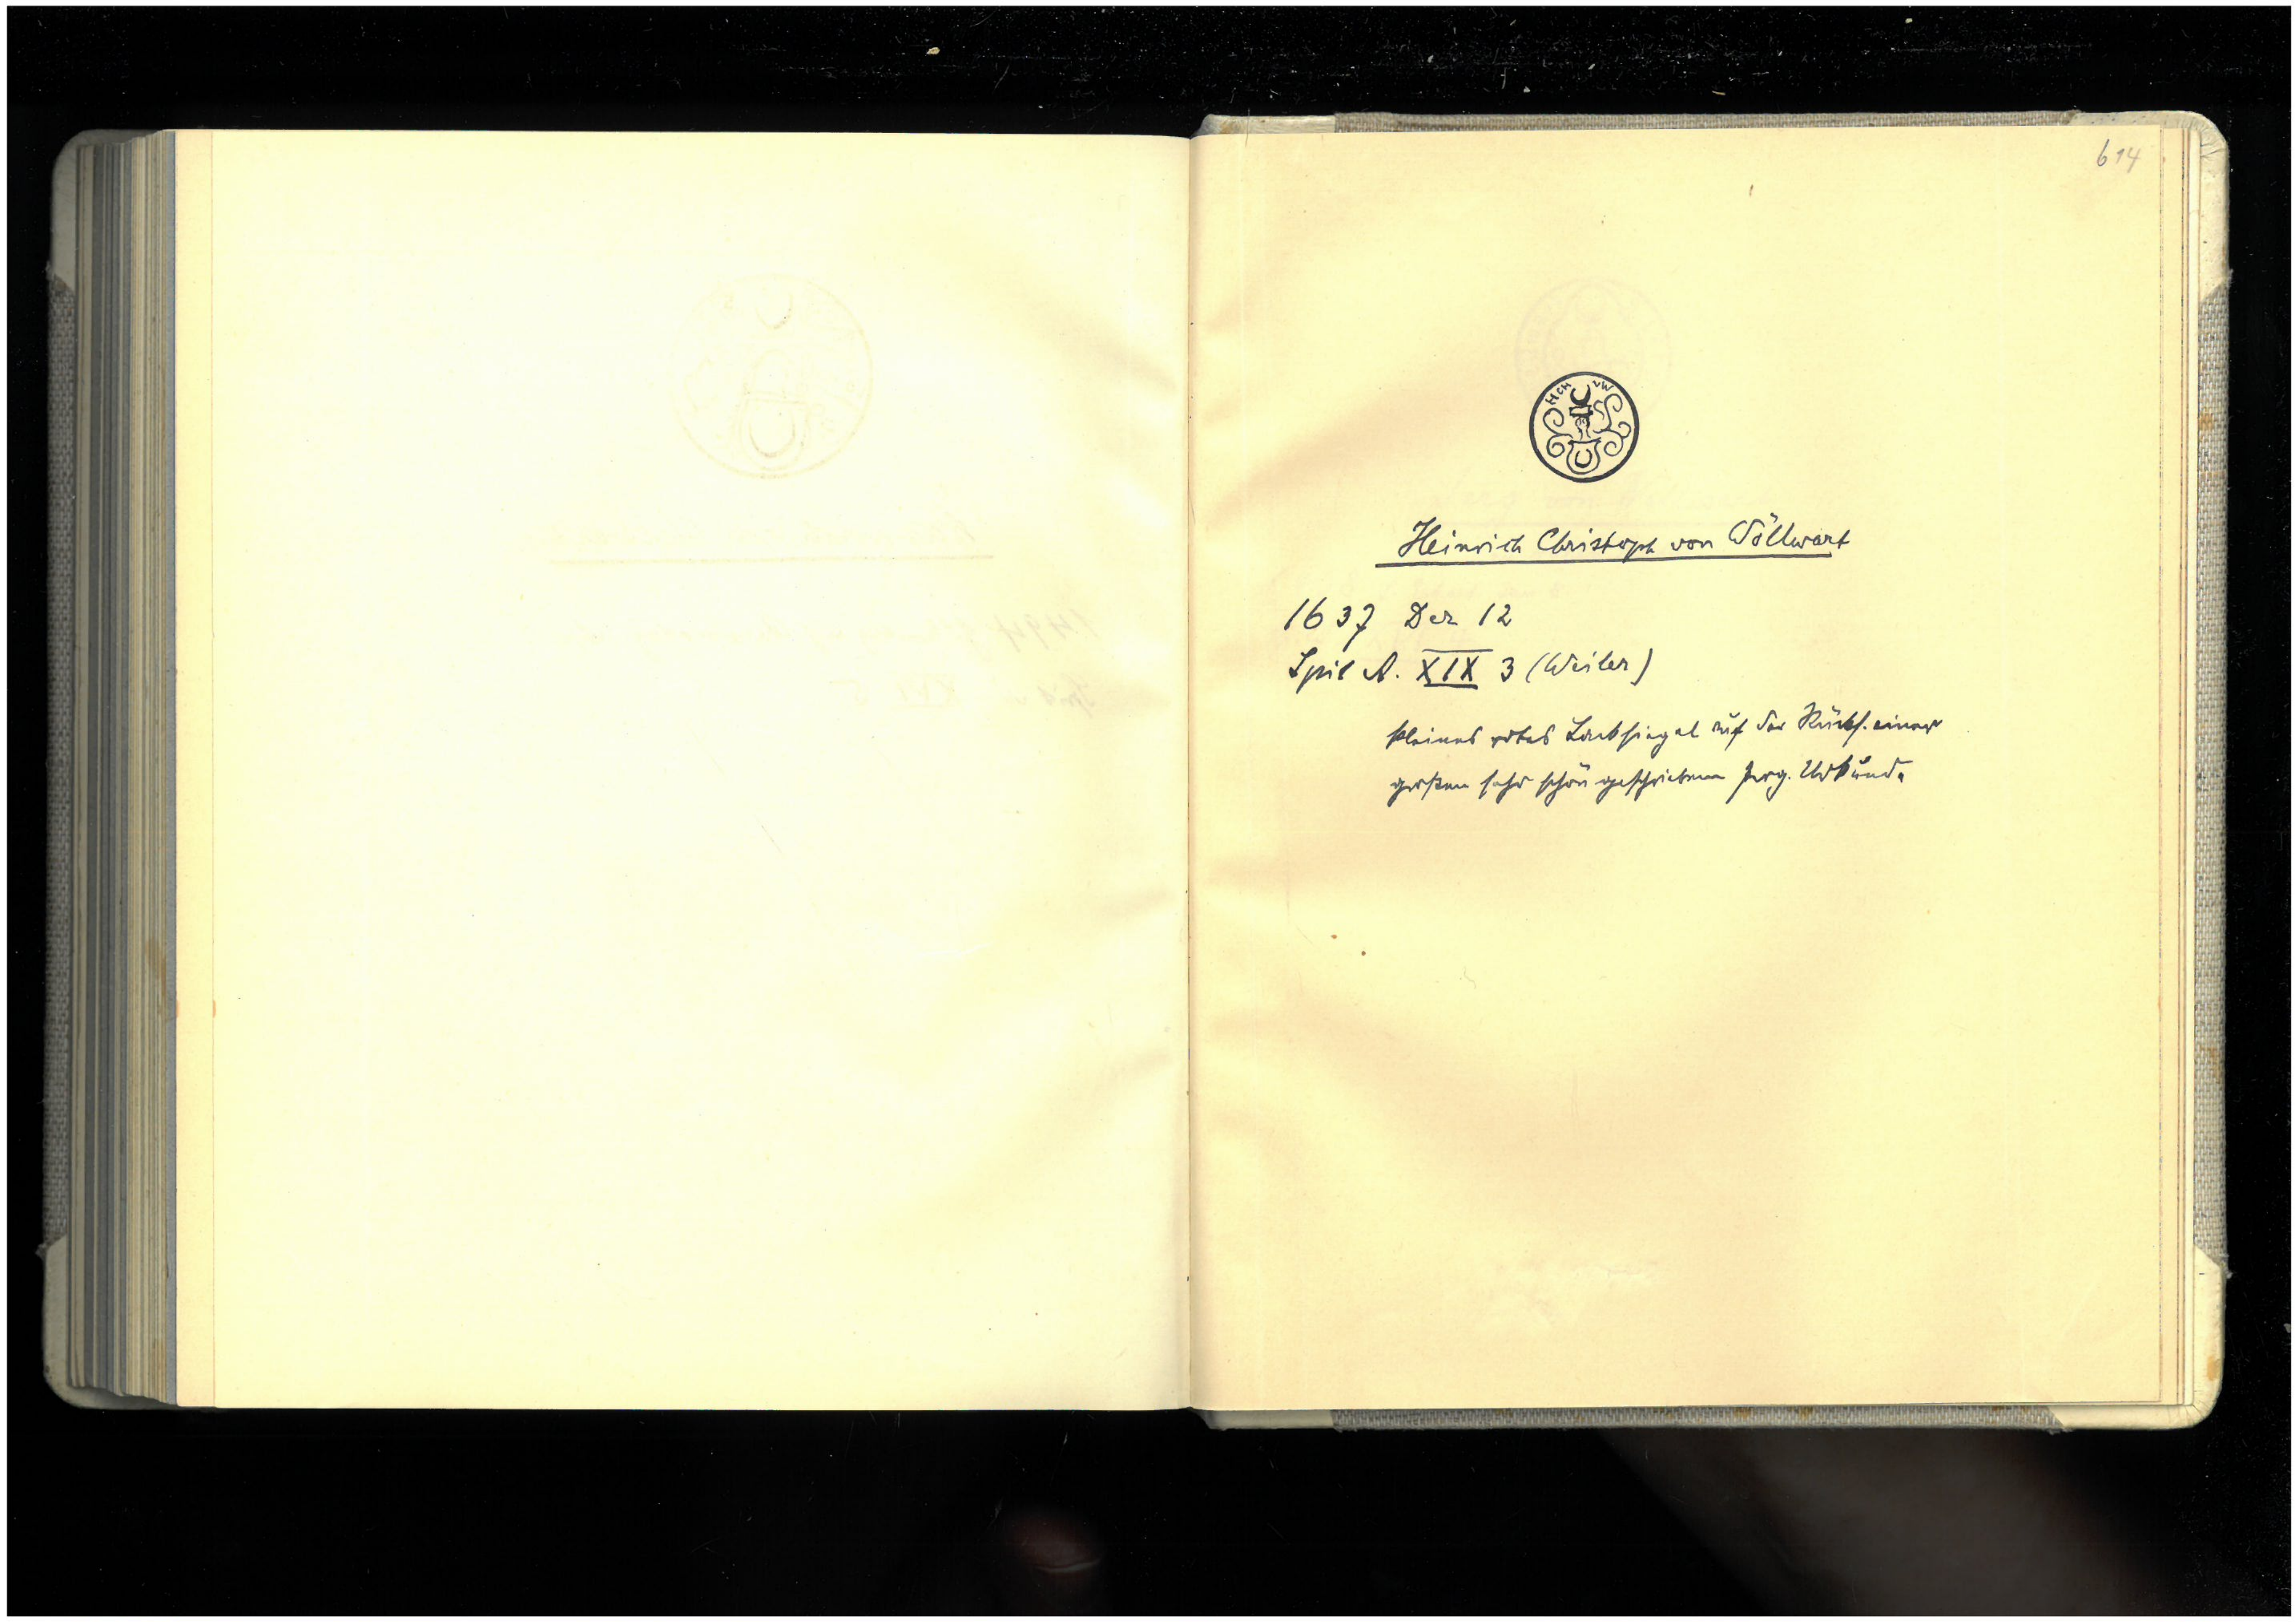 614
HCH vW
Heinrich Christoph von Wöllwart
1637 Dez 12
Spit A. XIX 3 (Weiler)
kleines rotes Lacksiegel auf der Rücks. einer
großen sehr schön geschriebenen Perg. Urkunde